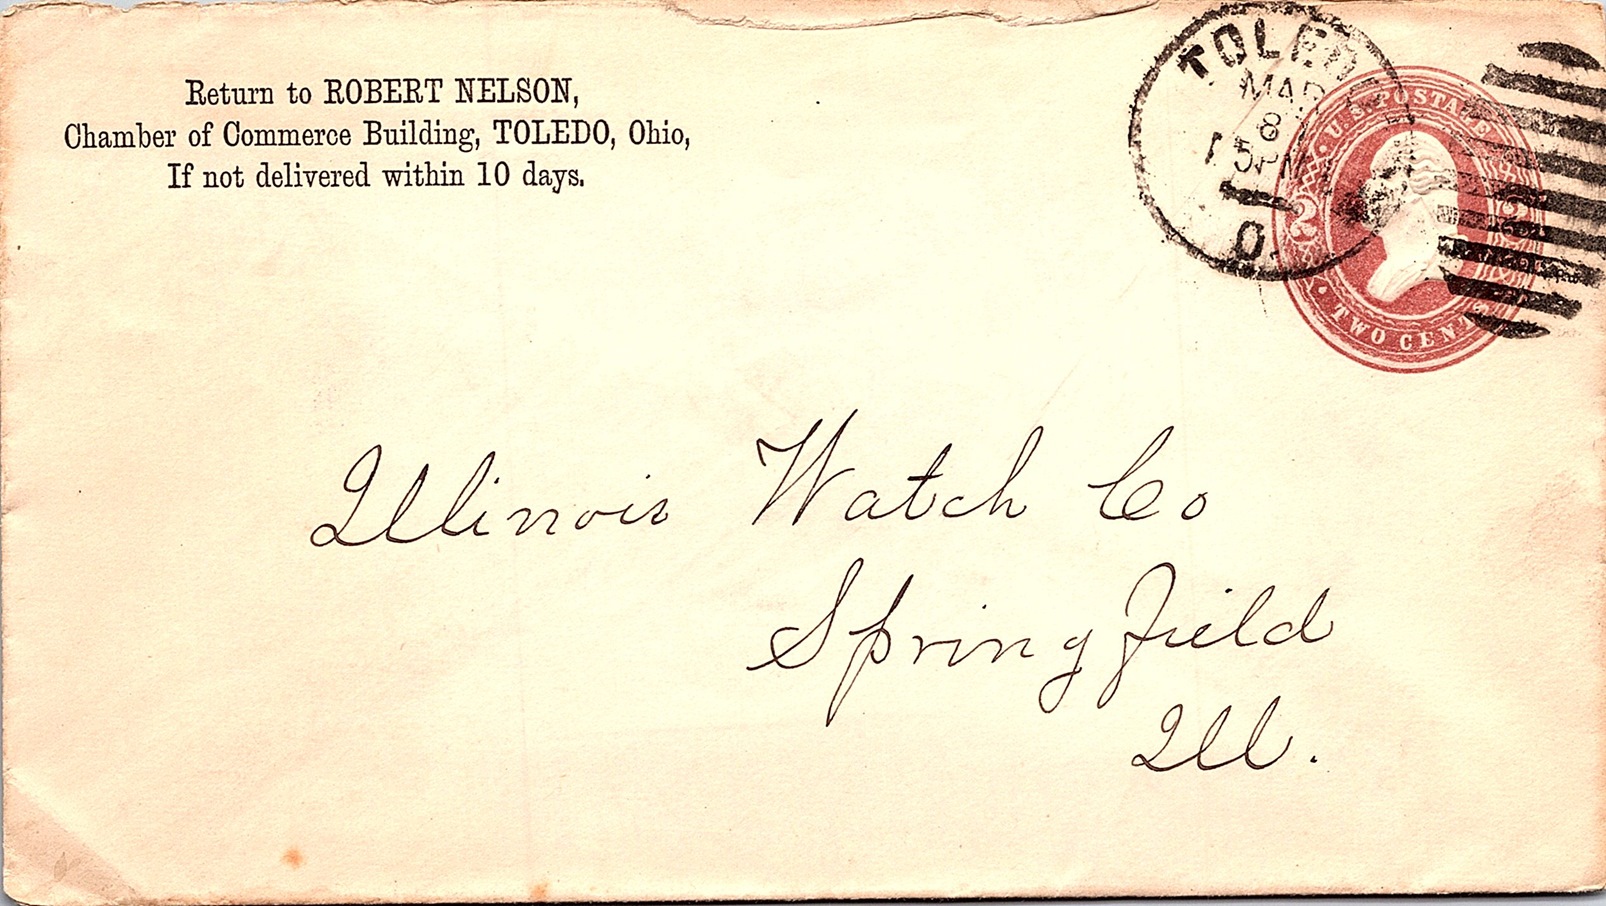 Return to ROBERT NELSON,
Chamber of Commerce Building, TOLEDO, Ohio,
If not delivered within 10 days.
TOLEDO
MAR
8
5 PM
O.
U.S. POSTAGE
2 2
TWO CENTS
Illinois Watch Co
Springfield
Ill.